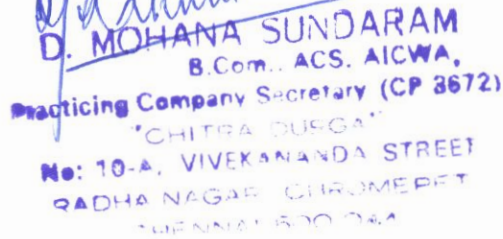 D. MOHANA SUNDARAM
B.Com., ACS. AICWA,
Practicing Company Secretary (CP 3672)
"CHITRA DURGA"
No: 10-A, VIVEKANANDA STREET
RADHA NAGAR CHROMEPET
CHENNAI 600 044